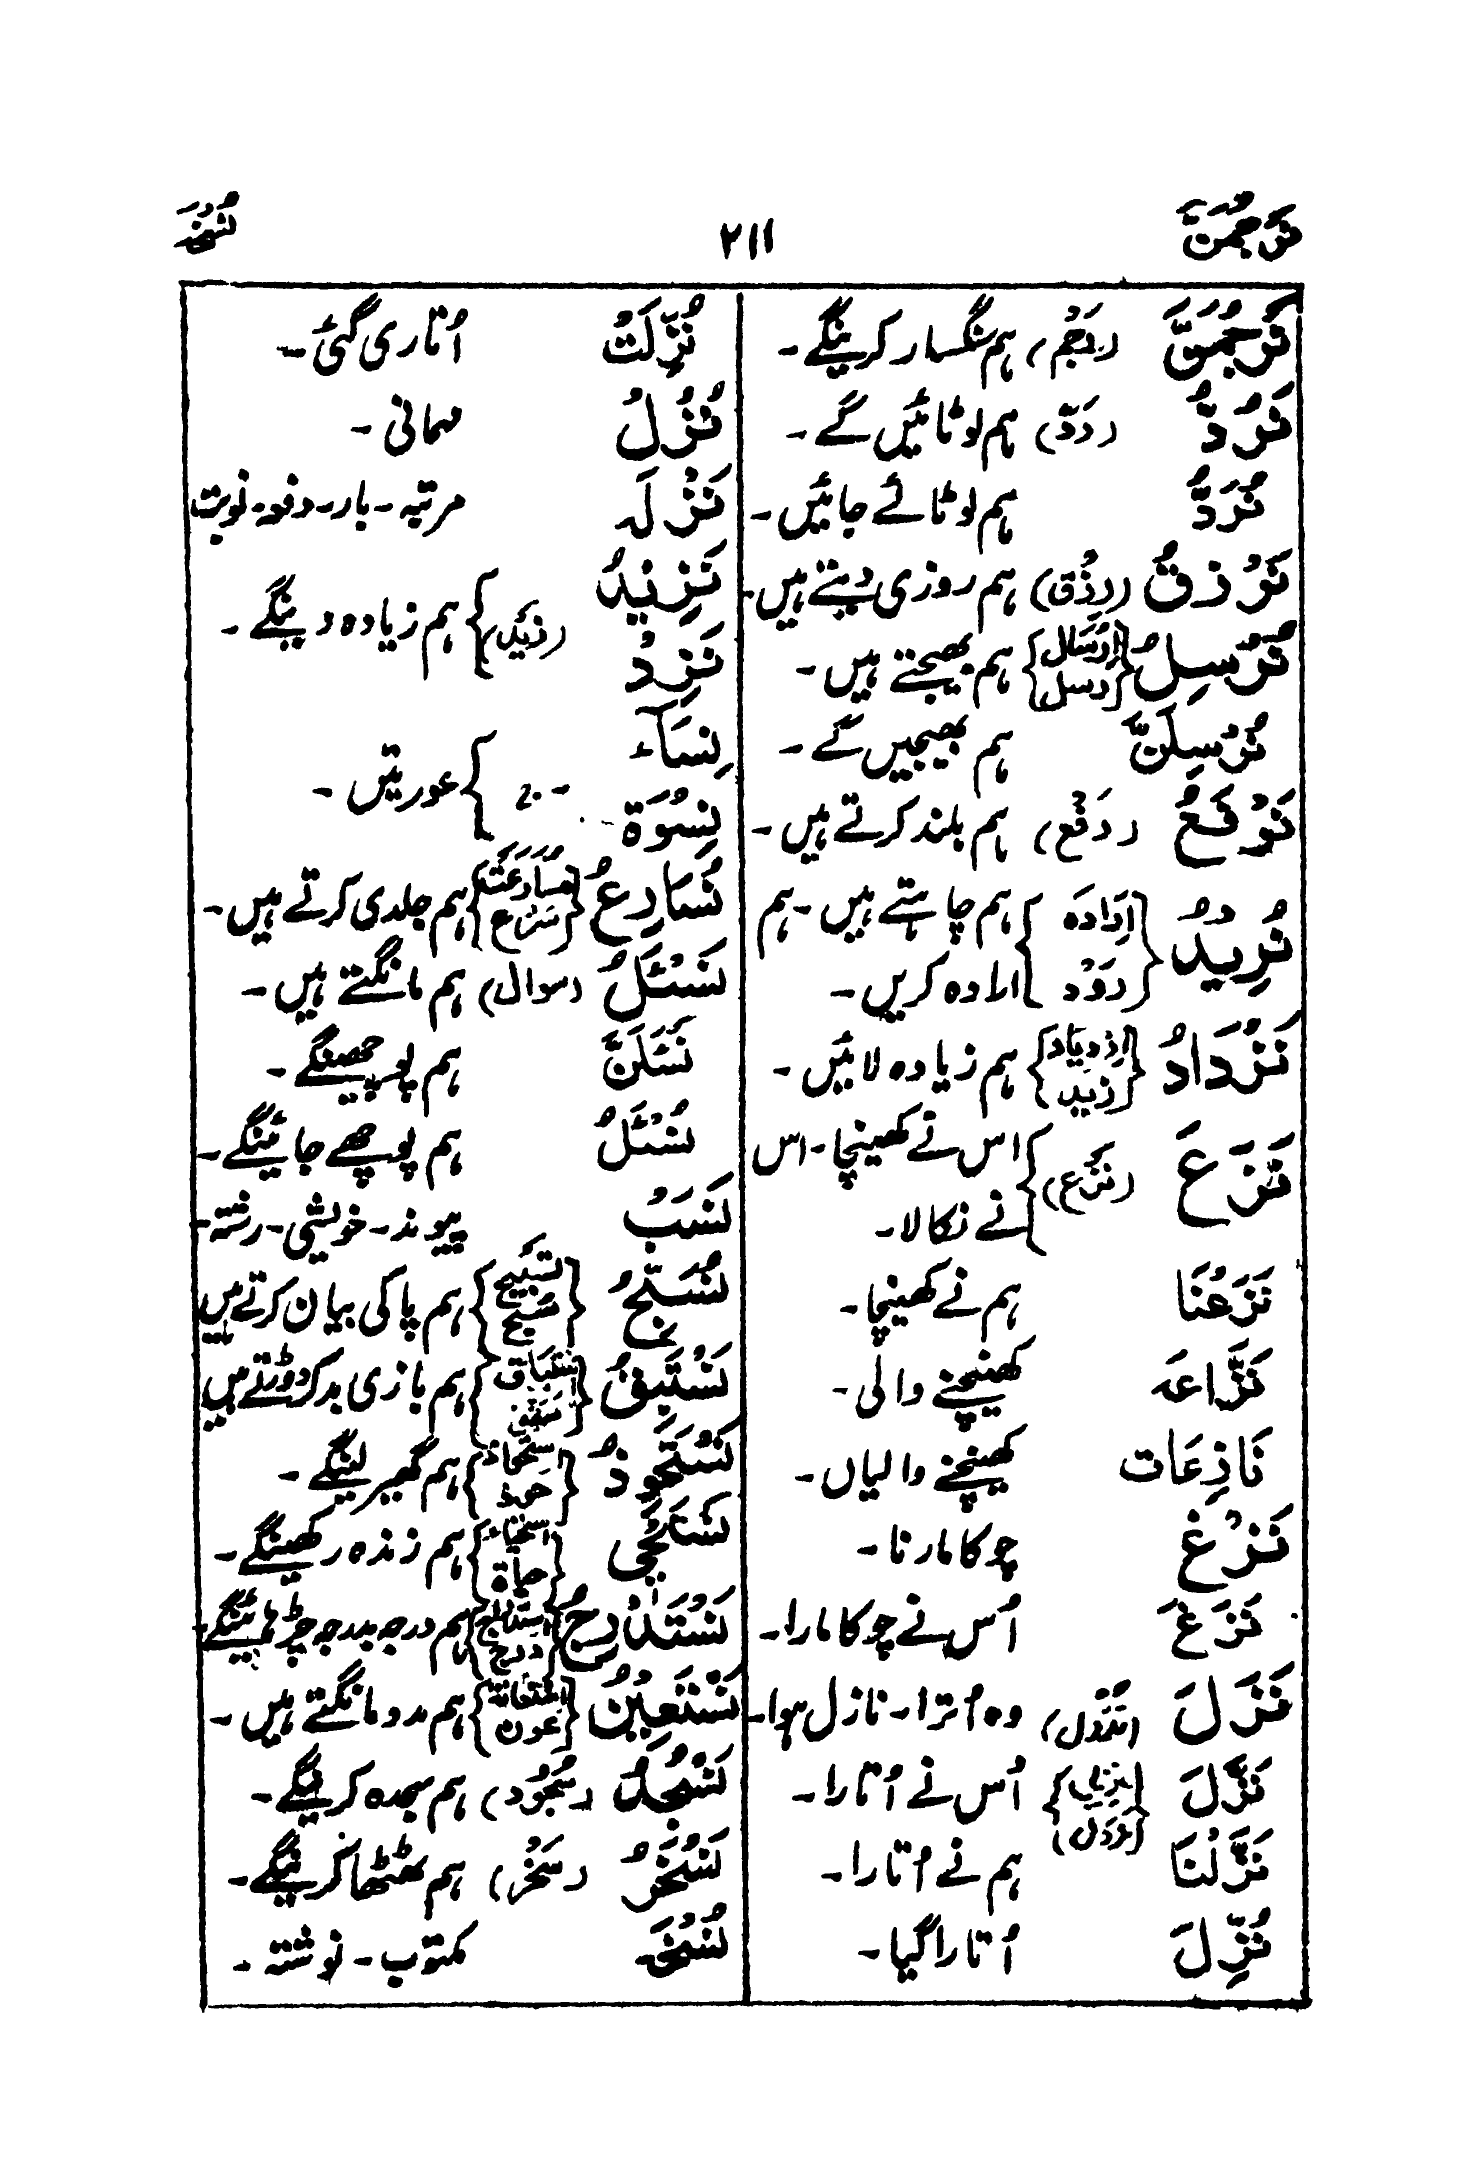 نَرْجُمَنَّ
۲۱۱
نُسْخَۃ
نَرْجُمَنَّ (رَجْم) ہم سنگسار کرینگے۔
نَرُدُّ (رَدّ) ہم لوٹائیں گے۔
نُرَدُّ ہم لوٹائے جائیں۔
نَرْزُقُ (رِزْق) ہم روزی دیتے ہیں۔
نُرْسِلُ {اِرْسَال رسل} ہم بھیجتے ہیں۔
نُرْسِلَنَّ ہم بھیجیں گے۔
نَرْفَعُ (رَفْع) ہم بلند کرتے ہیں۔
نُرِیدُ {اِرَادَہ رَوْد} ہم چاہتے ہیں۔ ہم
ارادہ کریں۔
نَزْدَادُ {اِزْدِیَاد زید} ہم زیادہ لائیں۔
نَزَعَ (نَزْع) اس نے کھینچا۔ اس
نے نکالا۔
نَزَعْنَا ہم نے کھینچا۔
نَزَّاعَہ کھینچنے والی۔
نَازِعَات کھینچنے والیاں۔
نَزْغ چوکا مارنا۔
نَزَغَ اُس نے چوکا مارا۔
نَزَلَ (نُزُول) وہ اُترا۔ نازل ہوا۔
نَزَّلَ {تنزیل نزول} اُس نے اُتارا۔
نَزَّلْنَا ہم نے اُتارا۔
نُزِّلَ اُتارا گیا۔
نُزِّلَتْ اُتاری گئی۔
نُزُلُ مہمانی۔
نَزْلَہ مرتبہ۔ بار۔ دفعہ۔ نوبت
نَزِیدُ
نَزِدْ (زَیْد) ہم زیادہ دینگے۔
نِسَآء
نِسْوَۃ عورتیں۔
نُسَارِعُ {مُسَارَعَۃ سرع} ہم جلدی کرتے ہیں۔
نَسْئَلُ (سوال) ہم مانگتے ہیں۔
نَسْئَلَنَّ ہم پوچھینگے۔
نُسْئَلُ ہم پوچھے جائینگے۔
نَسَبْ پیوند۔ خویشی۔ رشتہ۔
نُسَبِّحُ {تسبیح سبح} ہم پاکی بیان کرتے ہیں
نَسْتَبِقُ {استباق سبق} ہم بازی بد کر دوڑتے ہیں
نَسْتَحْوِذُ {استحواذ حوذ} ہم گھیر لینگے۔
نَسْتَحْیِی {استحیاء حیاۃ} ہم زندہ رکھینگے۔
نَسْتَدْرِجُ {استدراج درج} ہم درجہ بدرجہ چڑھائینگے۔
نَسْتَعِیْنُ {استعانۃ عون} ہم مدد مانگتے ہیں۔
نَسْجُدُ (سُجُود) ہم سجدہ کرینگے۔
نَسْخَرُ (سَخْر) ہم ٹھٹھا کرینگے۔
نُسْخَۃ مکتوب۔ نوشتہ۔